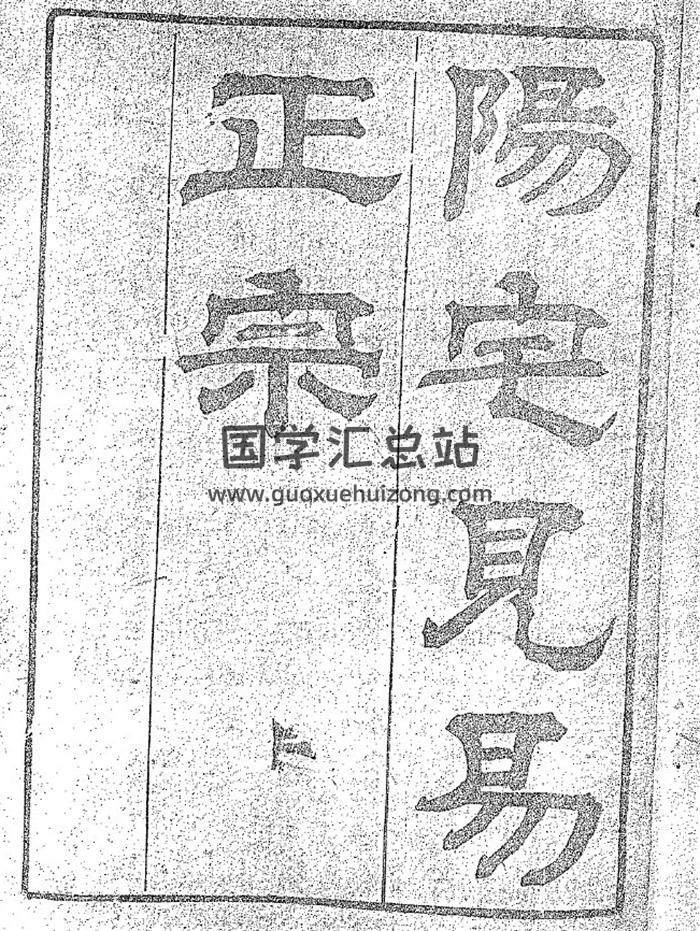 陽宅見易
正宗
下
国学汇总站
www.guoxuehuizong.com